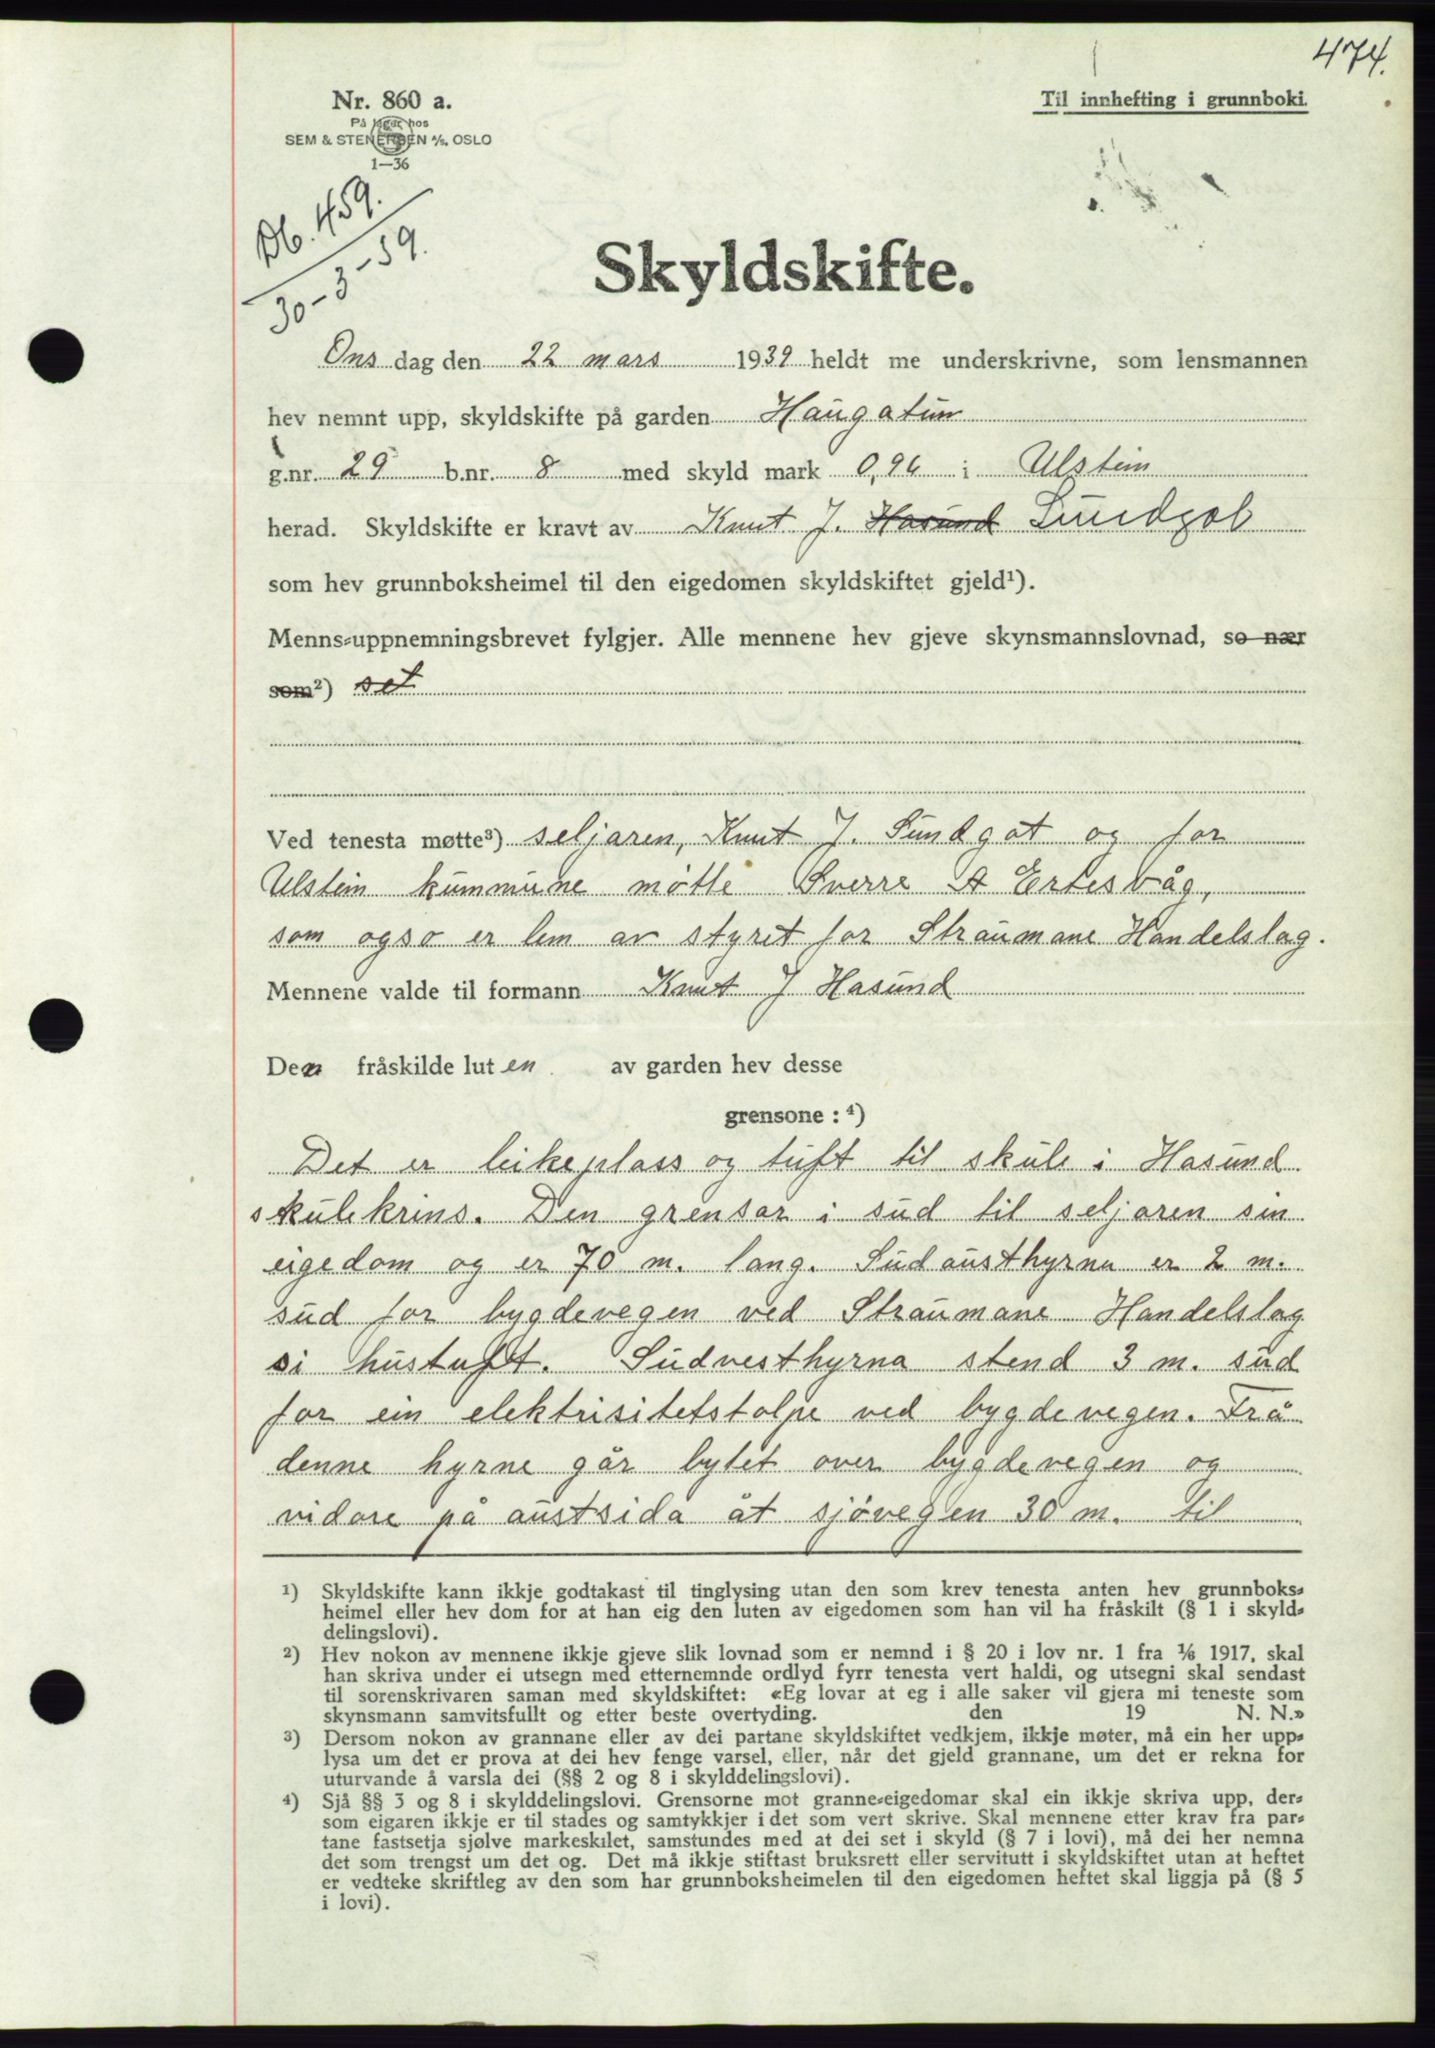 474.
Nr. 860 a.
På lager hos
SEM & STENERSEN A/S, OSLO
1—36
Til innhefting i grunnboki.
Db. 459.
30-3-39.
Skyldskifte.
Ons dag den 22 mars 1939 heldt me underskrivne, som lensmannen
hev nemnt upp, skyldskifte på garden Haugatun
g.nr. 29 b.nr. 8 med skyld mark 0,96 i Ulstein
herad. Skyldskifte er kravt av Knut J. Hasund Sundgot
som hev grunnboksheimel til den eigedomen skyldskiftet gjeld¹).
Menns-uppnemningsbrevet fylgjer. Alle mennene hev gjeve skynsmannslovnad, so nær
som²) set
Ved tenesta møtte³) seljaren, Knut J. Sundgot og for
Ulstein kummune møtte Sverre A Ertesvåg,
som også er lem av styret for Straumane Handelslag.
Mennene valde til formann Knut J Hasund
Den fråskilde luten av garden hev desse
grensone : ⁴)
Det er leikeplass og tuft til skule i Hasund
skulekrins. Den grensar i sud til seljaren sin
eigedom og er 70 m. lang. Sudausthyrna er 2 m.
sud for bygdevegen ved Straumane Handelslag
si hustuft. Sudvesthyrna stend 3 m. sud
for ein elektrisitetstolpe ved bygdevegen. Frå
denne hyrne går bytet over bygdevegen og
vidare på austsida åt sjövegen 30 m. til
¹) Skyldskifte kann ikkje godtakast til tinglysing utan den som krev tenesta anten hev grunnboks-
heimel eller hev dom for at han eig den luten av eigedomen som han vil ha fråskilt (§ 1 i skyld-
delingslovi).
²) Hev nokon av mennene ikkje gjeve slik lovnad som er nemnd i § 20 i lov nr. 1 fra 1/6 1917, skal
han skriva under ei utsegn med etternemnde ordlyd fyrr tenesta vert haldi, og utsegni skal sendast
til sorenskrivaren saman med skyldskiftet: «Eg lovar at eg i alle saker vil gjera mi teneste som
skynsmann samvitsfullt og etter beste overtyding. den 19 N. N.»
³) Dersom nokon av grannane eller av dei partane skyldskiftet vedkjem, ikkje møter, må ein her upp-
lysa um det er prova at dei hev fenge varsel, eller, når det gjeld grannane, um det er rekna for
uturvande å varsla dei (§§ 2 og 8 i skylddelingslovi).
⁴) Sjå §§ 3 og 8 i skylddelingslovi. Grensorne mot granne-eigedomar skal ein ikkje skriva upp, der-
som eigaren ikkje er til stades og samtykkjer i det som vert skrive. Skal mennene etter krav fra par-
tane fastsetja sjølve markeskilet, samstundes med at dei set i skyld (§ 7 i lovi), må dei her nemna
det som trengst um det og. Det må ikkje stiftast bruksrett eller servitutt i skyldskiftet utan at heftet
er vedteke skriftleg av den som har grunnboksheimelen til den eigedomen heftet skal liggja på (§ 5
i lovi).